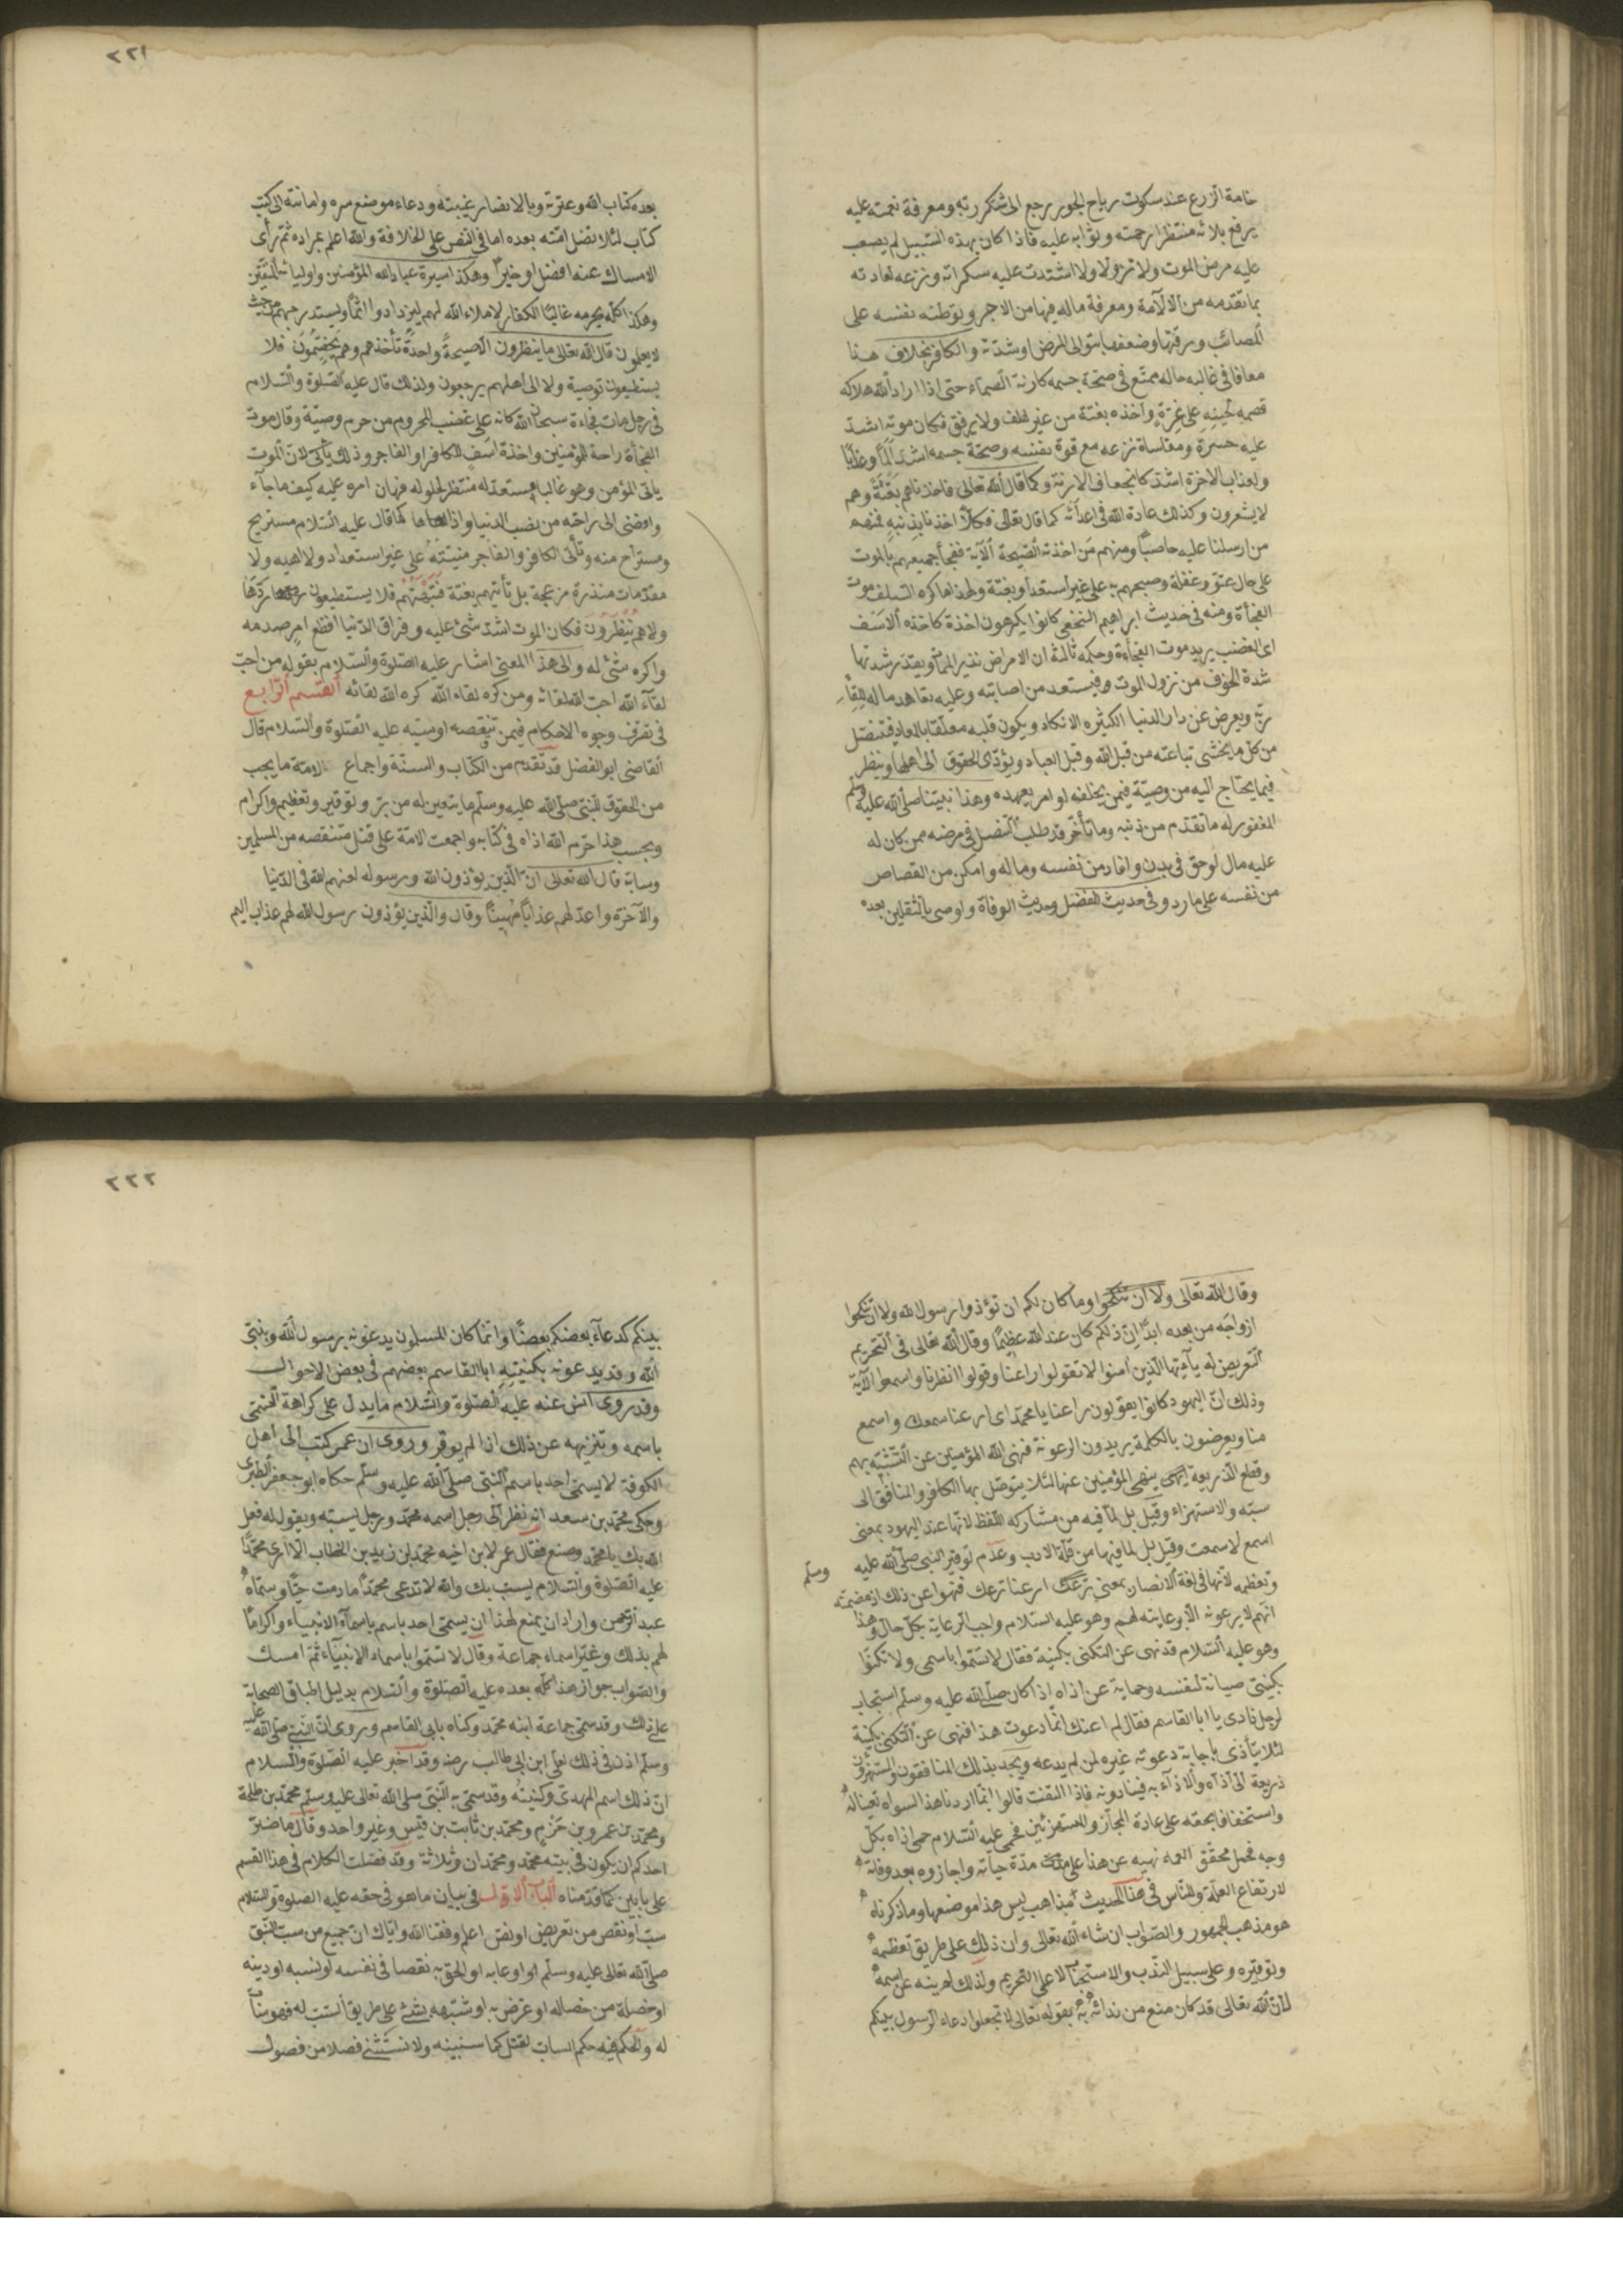 خامة الزرع عند سكوت رياح الجو يرجع الى شكر ربه ومعرفة نعمته عليه
يرفع بلائه منتظرا رحمته وثوابه عليه فاذا كان بهذه السبيل لم يصعب
عليه مرض الموت ولا نزوله ولا اشتدت عليه سكراته ونزعه لعادته
بما تقدمه من الآلامة ومعرفة ماله فيها من الاجر وتوطنه نفسه على
المصائب ورقتها وضعفها بتوالى المرض او شدته والكافر بخلاف هذا
معافا فى غالبه حاله ممتع فى صحة جسمه كارزة الصماء حتى اذا اراد الله هلاكه
قصمه لحينه على غرة واخذه بغتة من غير لطف ولا رفق فكان موته اشد
عليه حسرة ومقاساة نزعه مع قوة نفسه وصحة جسمه اشد الما وعذابا
ولعذاب الاخرة اشد كانجعاف الارزة وكما قال الله تعالى فاخذناهم بغتة وهم
لا يشعرون وكذلك عادة الله فى اعدائه كما قال تعالى فكلا اخذنا بذنبه فمنهم
من ارسلنا عليه حاصبا ومنهم من اخذته الصيحة الآية ففجأ جميعهم بالموت
على حال عتو وغفلة وصبحهم به على غير استعداد وبغتة ولهذا ما كره السلف موت
الفجأة ومنه فى حديث ابراهيم النخعى كانوا يكرهون اخذة كاخذه الاسف
اى الغضب يريد موت الفجأءة وحكمه ثالثة ان الامراض نذير الممات وبقدر شدتها
شدة الخوف من نزول الموت فيستعد من اصابته وعليه تعاهد ماله للقاء
ربه ويعرض عن دار الدنيا الكثيره الانكاد ويكون قلبه معلقا بالمعاد فتنصل
من كل ما يخشى تباعته من قبل الله وقبل العباد ويؤدى الحقوق الى اهلها وينظر
فيما يحتاج اليه من وصية فيمن يخلفه او امر يعهده وهذا نبينا صلى الله عليه وسلم
المغفور له ما تقدم من ذنبه وما تأخر قد طلب التنصل فى مرضه ممن كان له
عليه مال او حق فى بدن واقاد من نفسه وماله وامكن من القصاص
من نفسه على ما ورد فى حديث الفضل وحديث الوفاة واوصى بالثقلين بعده
٢٢١
بعده كتاب الله وعترته وبالانصار عيبته ودعاء الى كتب
كتاب لئلا تضل امته بعده اما فى النص على الخلافة والله اعلم بمراده ثم رأى
الامساك عنه افضل او خيرا وهكذا سيرة عباد الله المؤمنين واوليائه المتقين
وهكذا كله يحرمه غالبا الكفار لاملاء الله لهم ليزدادوا اثما وليستدرجهم من حيث
لا يعلمون قال الله تعالى ما ينظرون الا صيحة واحدة تأخذهم وهم يخصمون فلا
يستطيعون توصية ولا الى اهلهم يرجعون ولذلك قال عليه الصلوة والسلام
فى رجل مات فجاءة سبحان الله كانه على غضب المحروم من حرم وصيته وقال موت
الفجأة راحة للمؤمنين واخذة اسف للكافر او الفاجر وذلك يأتى لان الموت
ياتى المؤمن وهو غالبا مستعد له منتظر لحلوله فهان امره عليه كيف ما جآء
وافضى الى راحته من نصب الدنيا واذاها كما قال عليه السلام مستريح
ومستراح منه وتأتى الكافر والفاجر منيته على غير استعداد ولا اهبه ولا
مقدمات منذرة مزعجة بل تأتيهم بغتة فتبهتهم فلا يستطيعون ردها
ولا هم ينظرون فكان الموت اشد شئ عليه وفراق الدنيا افظع امر صدمه
واكره شئ له والى هذا المعنى اشار عليه الصلوة والسلام بقوله من احب
لقآء الله احب الله لقائه ومن كره لقاء الله كره الله لقائه القسم الرابع
فى تصرف وجوه الاحكام فيمن تنقصه او سبه عليه الصلوة والسلام قال
القاضى ابو الفضل قد تقدم من الكتاب والسنة واجماع الامة ما يجب
من الحقوق للنبى صلى الله عليه وسلم ما يتعين له من بر وتوقير وتعظيم واكرام
وبحسب هذا حرم الله اذاه فى كتابه واجمعت الامة على قتل متنقصه من المسلمين
وسابه قال الله تعالى ان الذين يؤذون الله ورسوله لعنهم الله فى الدنيا
والآخرة واعد لهم عذابا مهينا وقال والذين يؤذون رسول الله لهم عذاب اليم
وقال الله تعالى ولا ان تنكحوا وما كان لكم ان تؤذوا رسول الله ولا ان تنكحوا
ازواجه من بعده ابدا ان ذلكم كان عند الله عظيما وقال الله تعالى فى التحريم
التعريض له يآءيها الذين امنوا لا تقولوا راعنا وقولوا انظرنا واسمعوا الآية
وذلك ان اليهود كانوا يقولون راعنا يا محمد اى ارعنا سمعك واسمع
منا ويعرضون بالكلمة يريدون الرعونة فنهى الله المؤمنين عن التشبه بهم
وقطع الذريعة بنهى المؤمنين عنها لئلا يتوصل بها الكافر والمنافق الى
سبه والاستهزاء وقيل بل لما فيه من مشاركه اللفظ لانها عند اليهود بمعنى
اسمع لا سمعت وقيل بل لما فيها من قلة الادب وعدم توقير النبى صلى الله عليه وسلم
وتعظيمه لانها فى لغة الانصار بمعنى ارعنا نرعك فنهوا عن ذلك اذ مضمنه
انهم لا يرعونه الا برعايته لهم وهو عليه السلام واجب الرعاية بكل حال وهذا
وهو عليه السلام قد نهى عن التكنى بكنيته فقال لا تسموا باسمى ولا تكنوا
بكنيتى صيانة لنفسه وحماية عن اذاه اذا كان صلى الله عليه وسلم استجاب
لرجل نادى يا ابا القاسم فقال لم اعنك انما دعوت هذا فنهى عن التكنى بكنية
لئلا يتأذى بأجابة دعوته غيره لمن لم يدعه ويجد بذلك المنافقون والمستهزؤن
ذريعة الى اذاه والاذرآء به فينادونه فاذا التفت قالوا انما اردنا هذا لسواه تعنيتا له
واستخفافا بحقه على عادة المجان والمستهزئين فحمى عليه السلام حمى اذاه بكل
وجه فحمل محققو العلماء نهيه عن هذا على مدة حياته واجازوه بعد وفاته
لارتفاع العلة وللناس فى هذا الحديث مذاهب ليس هذا موضعها وما ذكرناه
هو مذهب الجمهور والصواب ان شاء الله تعالى وان ذلك على طريق تعظيمه
وتوقيره وعلى سبيل الندب والاستحباب لا على التحريم ولذلك لم ينه عن اسمه
لان الله تعالى قد كان منع من ندائه به بقوله تعالى لا تجعلوا دعاء الرسول بينكم
٢٢٢
بينكم كدعآء بعضكم بعضا وانما كان المسلمون يدعونه برسول الله ونبى
الله وقد يدعونه بكنيته ابا القاسم بعضهم فى بعض الاحوال
وقد روى انس عنه عليه الصلوة والسلام ما يدل على كراهة التسمى
باسمه وتنزيهه عن ذلك اذا لم يوقر وروى ان عمر كتب الى اهل
الكوفة لا يسمى احد باسم النبى صلى الله عليه وسلم حكاه ابو جعفر الطبرى
وحكى محمد بن سعد انه نظر الى رجل اسمه محمد ورجل يسبه ويقول له فعل
الله بك يا محمد وصنع فقال عمر لابن اخيه محمد بن زيد بن الخطاب الا ارى محمدا
عليه الصلوة والسلام يسب بك والله لا تدعى محمدا ما دمت حيا وسماه
عبد الرحمن واراد ان يمنع لهذا ان يسمى احد باسم باسمآء الانبياء واكراما
لهم بذلك وغير اسماء جماعة وقال لا تسموا باسماء الانبيآء ثم امسك
والصواب جواز هذا كله بعده عليه الصلوة والسلام بدليل اطباق الصحابة
على ذلك وقد سمى جماعة ابنه محمد وكناه بابى القاسم وروى ان النبى صلى الله عليه
وسلم اذن فى ذلك لعلى ابن ابى طالب رضه وقد اخبر عليه الصلوة والسلام
ان ذلك اسم المهدى وكنيته وقد سمى به النبى صلى الله تعالى عليه وسلم محمد بن طلحة
ومحمد بن عمرو بن حزم ومحمد بن ثابت بن قيس وغير واحد وقال ما ضر
احدكم ان يكون فى بيته محمد ومحمدان وثلاثة وقد فصلت الكلام فى هذا القسم
على بابين كما قدمناه الباب الاول فى بيان ما هو فى حقه عليه الصلوة والسلام
سب او نقص من تعريض او نص اعلم وفقنا الله واياك ان جميع من سب النبى
صلى الله تعالى عليه وسلم او عابه او الحق به نقصا فى نفسه او نسبه او دينه
او خصلة من خصاله او عرض به او شبهه بشئ على طريق السب له فهو ساب
له والحكم فيه حكم الساب يقتل كما سنبينه ولا نستثنى فصلا من فصول